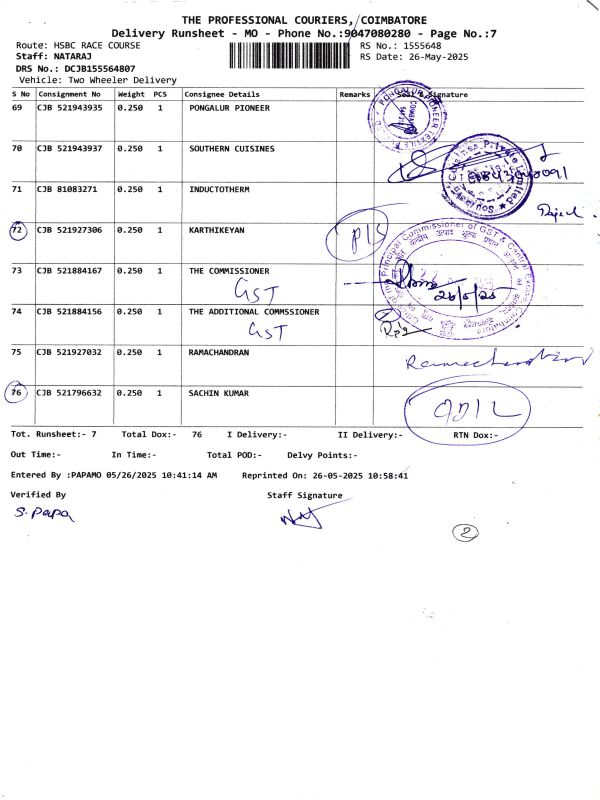 THE PROFESSIONAL COURIERS, COIMBATORE
Delivery Runsheet - MO - Phone No.:9047080280 - Page No.:7
Route: HSBC RACE COURSE
RS No.: 1555648
Staff: NATARAJ
RS Date: 26-May-2025
DRS No.: DCJB155564807
Vehicle: Two Wheeler Delivery
S No Consignment No Weight PCS Consignee Details Remarks Seal & Signature
69 CJB 521943935 0.250 1 PONGALUR PIONEER
PONGALUR PIONEER TEXTILES
70 CJB 521943937 0.250 1 SOUTHERN CUISINES
Private Limited
71 CJB 81083271 0.250 1 INDUCTOTHERM
72 CJB 521927306 0.250 1 KARTHIKEYAN
Principal Commissioner of GST & Central Excise
73 CJB 521884167 0.250 1 THE COMMISSIONER
GST
26/5/25
74 CJB 521884156 0.250 1 THE ADDITIONAL COMMSSIONER
GST
75 CJB 521927032 0.250 1 RAMACHANDRAN
Ramachandran
76 CJB 521796632 0.250 1 SACHIN KUMAR
Tot. Runsheet:- 7 Total Dox:- 76 I Delivery:- II Delivery:- RTN Dox:-
Out Time:- In Time:- Total POD:- Delvy Points:-
Entered By :PAPAMO 05/26/2025 10:41:14 AM Reprinted On: 26-05-2025 10:58:41
Verified By Staff Signature
S. Papa
2